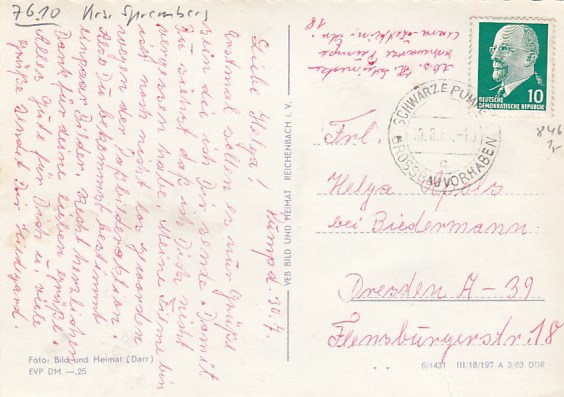 7610 Krs. Spremberg
Liebe Helga! Pumpe 30.7.
Erstmal sollen es nur Grüße
sein die ich Dir sende. Damit
Du siehst daß ich Dich nicht
vergessen habe. Meine Filme bin
ich noch nicht los geworden
wegen der Farbbilder
Also Du bekommst bestimmt
ein paar Bilder. Recht herzlichen
Dank für deine lieben Grüße.
Alles Gute für Dich u. viele
Grüße sendet Dir Hildegard.
Foto: Bild und Heimat (Darr)
EVP DM —.25
VEB BILD UND HEIMAT REICHENBACH i. V.
Schwarze Pumpe
18
DEUTSCHE
DEMOKRATISCHE REPUBLIK
10
SCHWARZE PUMPE
c
GROSSBAUVORHABEN
846
Frl.
Helga
bei Biedermann
Dresden A-39
Flensburgerstr. 18
6/1431 III/18/197 A 3/63 DDR